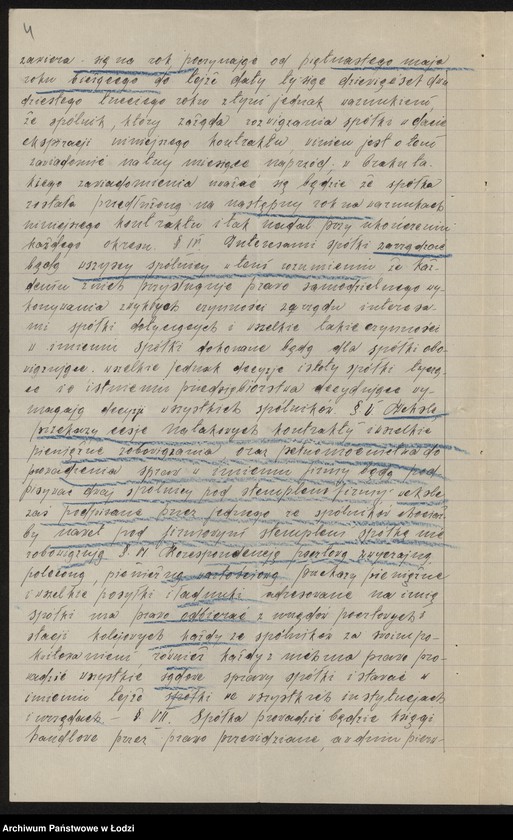 4
zawiera się na rok poczynając od piętnastego maja
roku bieżącego do tejże daty tysiąc dziewięćset dwu
dziestego trzeciego roku z tym jednak warunkiem
że spólnik, który zażąda rozwiązania spółki w dacie
ekspiracji niniejszego kontraktu winien jest o tem
zawiadomić na trzy miesiące naprzód. w braku ta-
kiego zawiadomienia uważać się będzie że spółka
została przedłużoną na następny rok na warunkach
niniejszego kontraktu i tak nadal przy ukończeniu
każdego okresu. § IV Interesami spółki zarządzać
będą wszyscy spólnicy w tem rozumieniu że każ-
demu z nich przysługuje prawo samodzielnego wy-
konywania zwykłych czynności zarządu interesa-
mi spółki dotyczących i wszelkie takie czynności
w imieniu spółki dokonane będą dla spółki obo-
wiązujące. wszelkie jednak decyzje istoty spółki tyczą-
ce i o istnieniu przedsiębiorstwa decydujące wy-
magają decyzji wszystkich spólników. § V Weksle
przekazy cesje należowych kontrakty wszelkie
pieniężne zobowiązania oraz pełnomocnictwa do
prowadzenia spraw w imieniu firmy będą pod
pisywać dwaj spólnicy pod stemplem firmy, weksle
zaś podpisane przez jednego ze spólników choćim
by nawet pod firmowym stemplem spółki nie
zobowiązują. § VI Korespondencję pocztową zwyczajną
poleconą, pieniężną wartościową, przekazy pieniężne
i wszelkie posyłki i ładunki adresowane na imię
spółki ma prawo odbierać z urzędów pocztowych i
stacji kolejowych każdy ze spólników za swoim po-
kwitowaniem, również każdy z nich ma prawo pro-
wadzić wszystkie sądowe sprawy spółki i stawać w
imieniu tejże spółki we wszystkich instytucjach
i urzędach – § VII. Spółka prowadzić będzie księgi
handlowe przez prawo przewidziane, a w dniu pierw-
Archiwum Państwowe w Łodzi